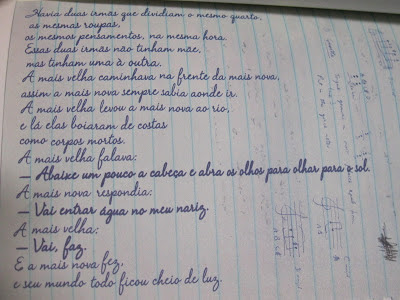 Havia duas irmãs que dividiam o mesmo quarto,
as mesmas roupas,
os mesmos pensamentos, na mesma hora.
Essas duas irmãs não tinham mãe,
mas tinham uma à outra.
A mais velha caminhava na frente da mais nova,
assim a mais nova sempre sabia aonde ir.
A mais velha levou a mais nova ao rio,
e lá elas boiaram de costas
como corpos mortos.
A mais velha falava:
— Abaixe um pouco a cabeça e abra os olhos para olhar para o sol.
A mais nova respondia:
— Vai entrar água no meu nariz.
A mais velha:
— Vai, faz.
E a mais nova fez,
e seu mundo todo ficou cheio de luz.